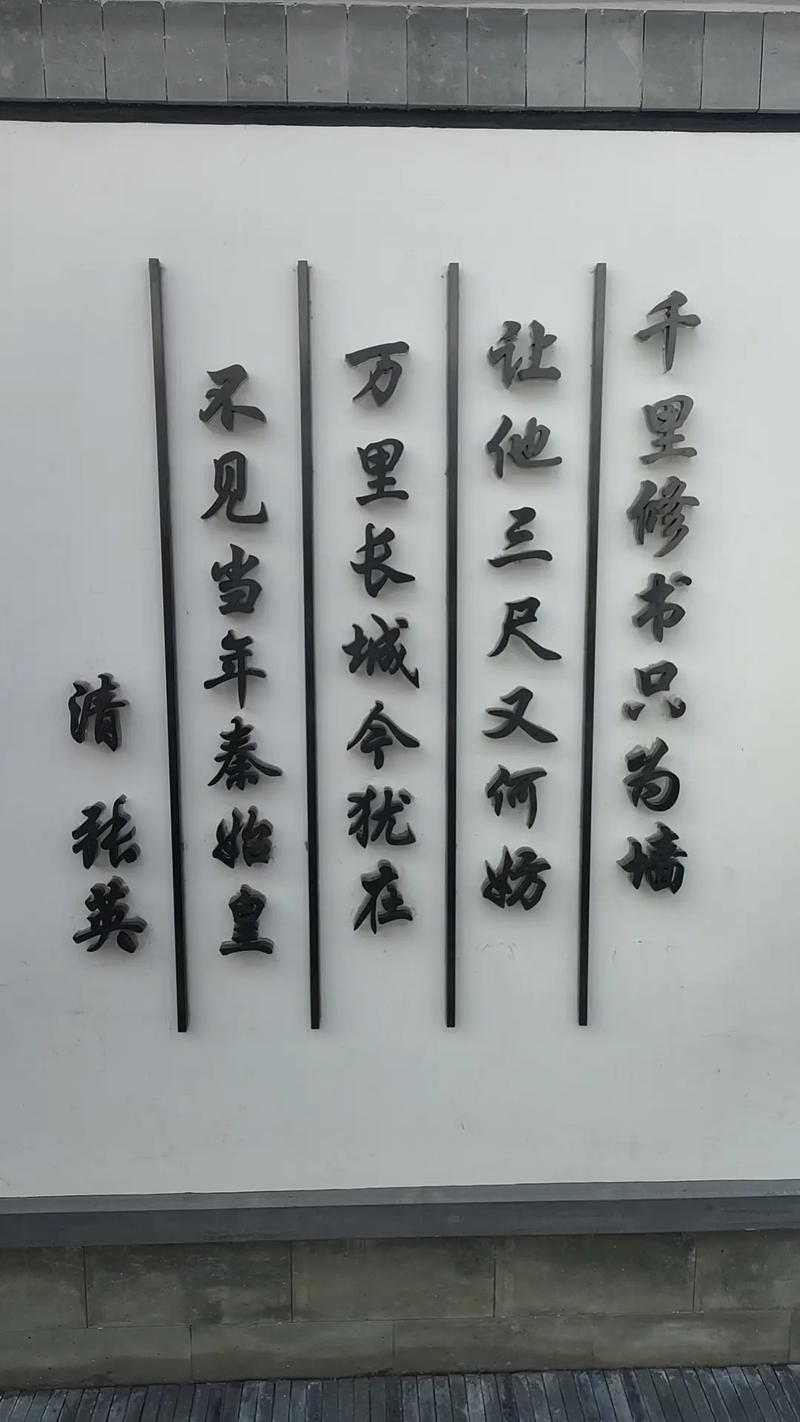 千里修书只为墙
让他三尺又何妨
万里长城今犹在
不见当年秦始皇
清 张英